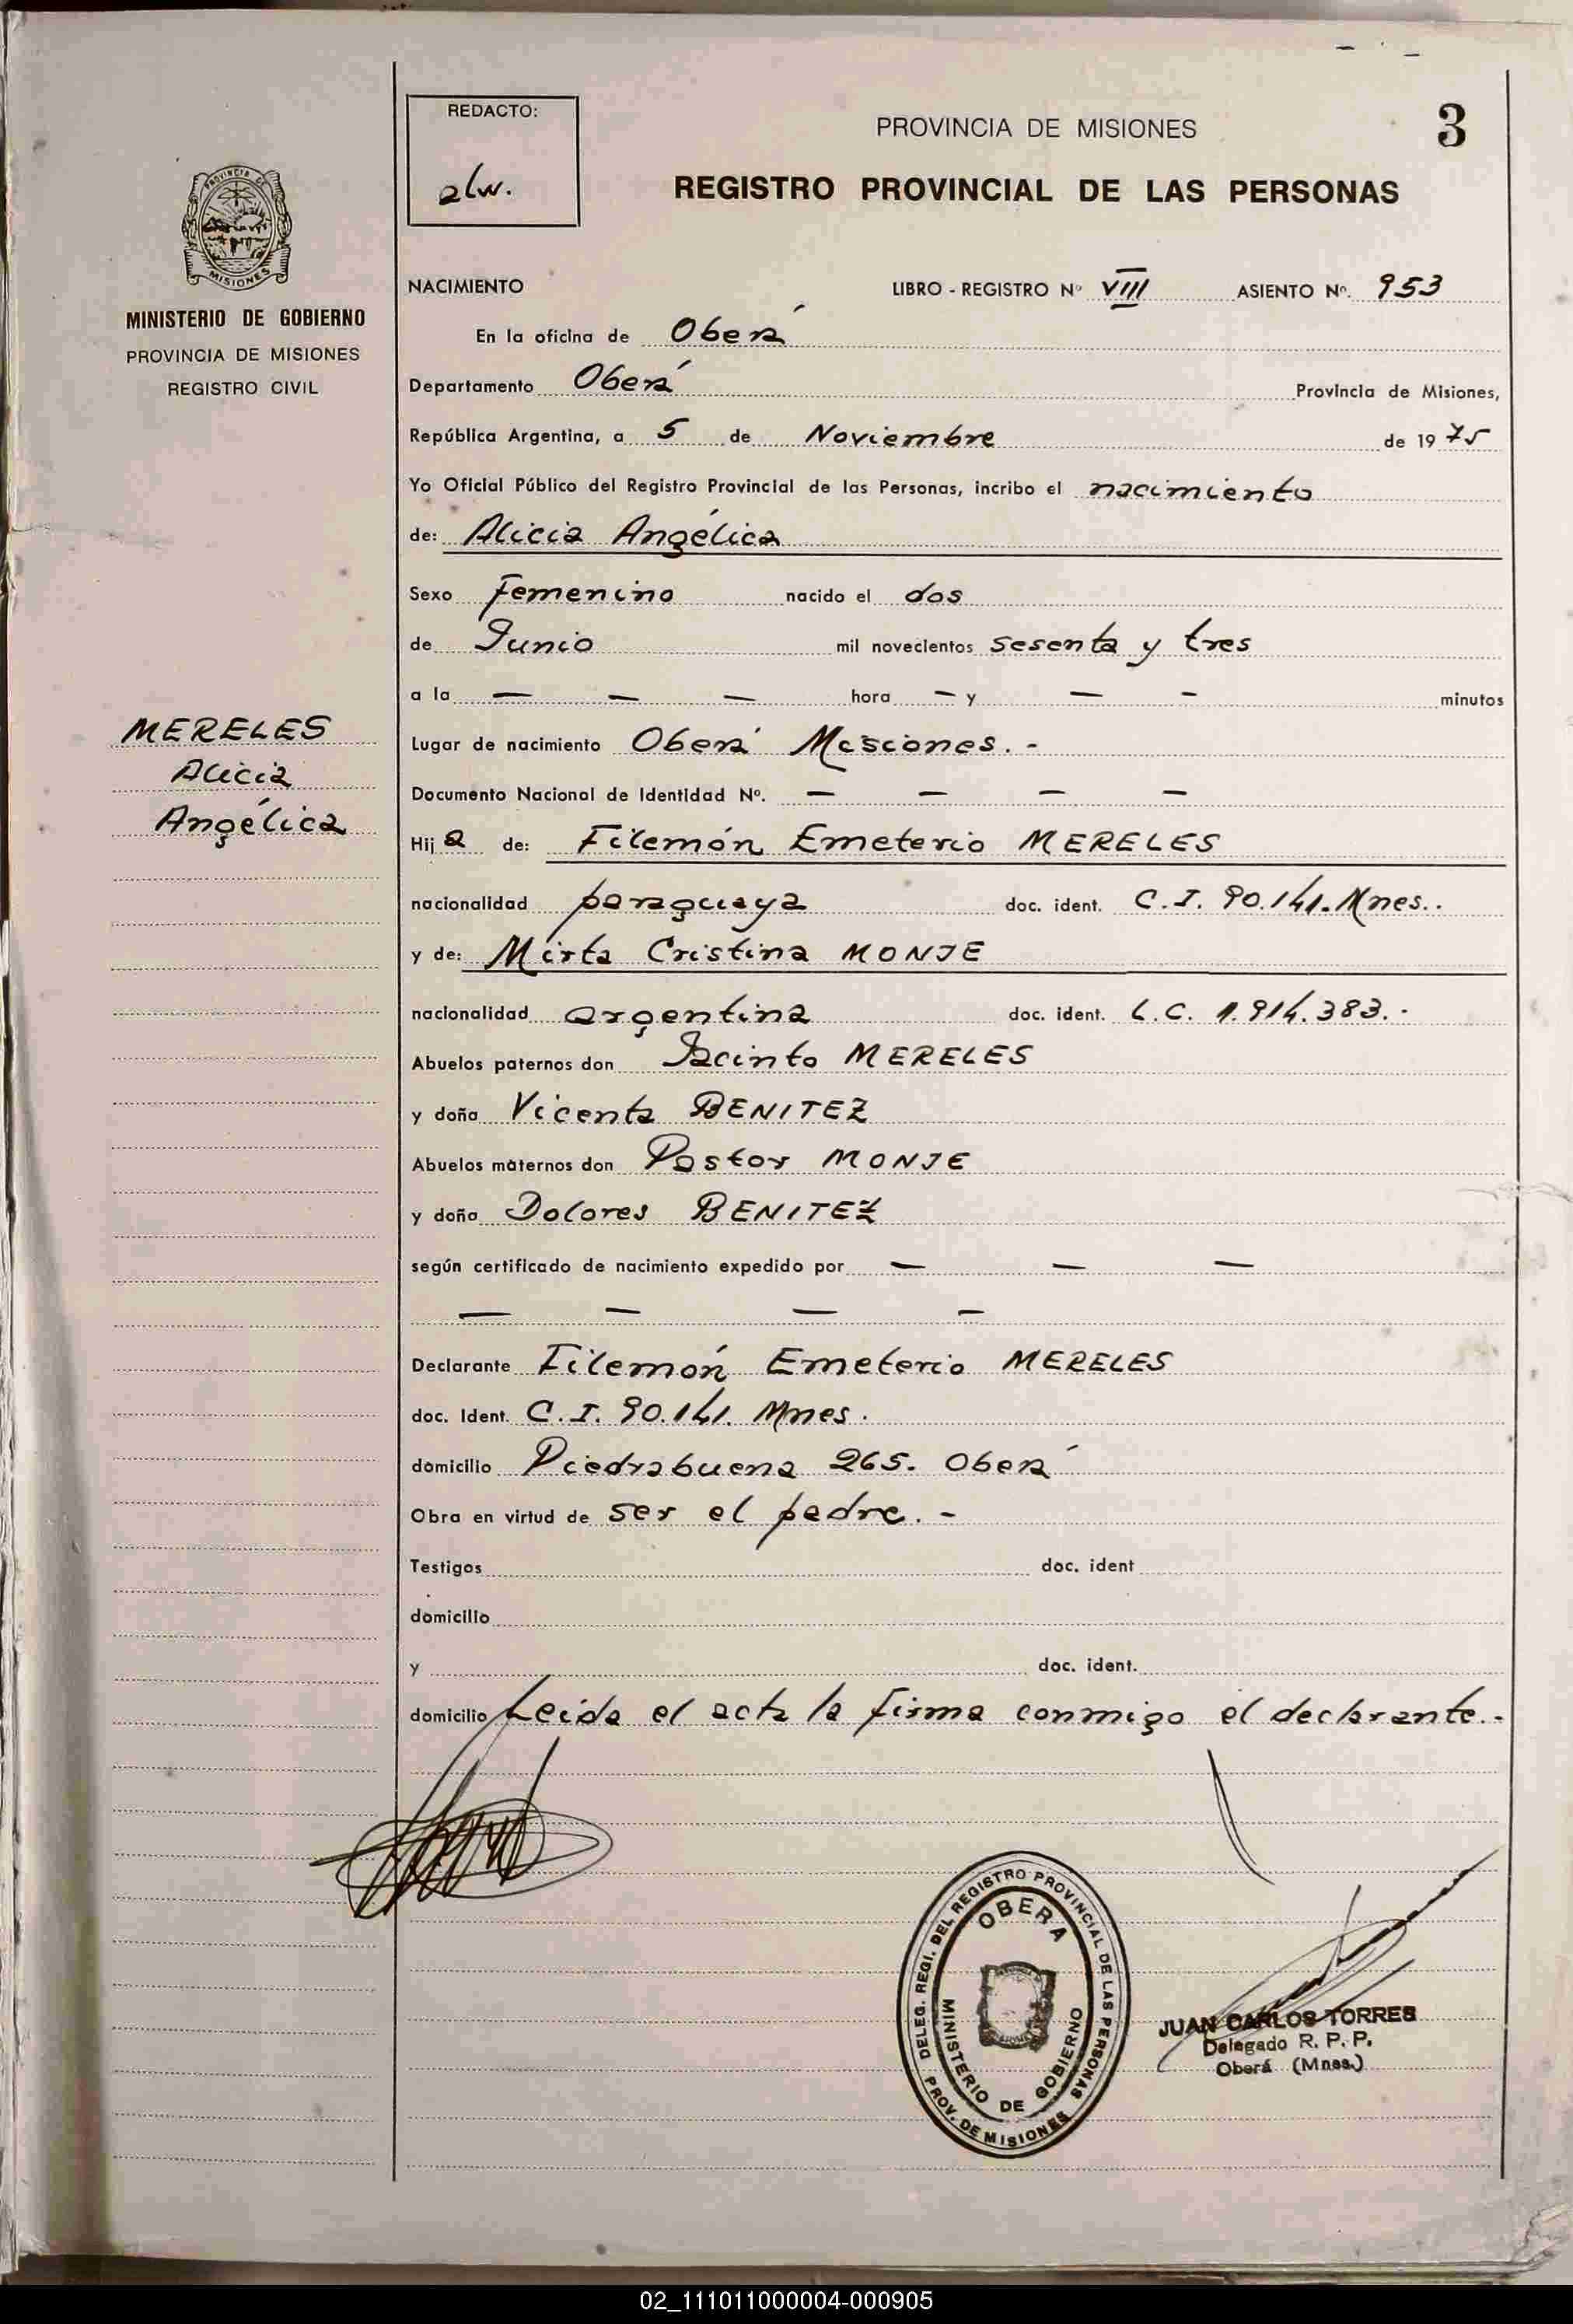 REDACTO:
alw.
PROVINCIA DE MISIONES
3
REGISTRO PROVINCIAL DE LAS PERSONAS
PROVINCIA DE
MISIONES
MINISTERIO DE GOBIERNO
PROVINCIA DE MISIONES
REGISTRO CIVIL
NACIMIENTO LIBRO - REGISTRO Nº VIII ASIENTO Nº. 953
En la oficina de Oberá
Departamento Oberá Provincia de Misiones,
República Argentina, a 5 de Noviembre de 1975
Yo Oficial Público del Registro Provincial de las Personas, incribo el nacimiento
de: Alicia Angélica
Sexo Femenino nacido el dos
de Junio mil novecientos sesenta y tres
a la — — — hora — y — — minutos
MERELES
Alicia
Angélica
Lugar de nacimiento Oberá Misiones. -
Documento Nacional de Identidad Nº. — — — —
Hija de: Filemón Emeterio MERELES
nacionalidad paraguaya doc. ident. C.I. 90.141. Mnes..
y de: Mirta Cristina MONJE
nacionalidad argentina doc. ident. L.C. 1.914.383. -
Abuelos paternos don Jacinto MERELES
y doña Vicenta BENITEZ
Abuelos maternos don Pastor MONJE
y doña Dolores BENITEZ
según certificado de nacimiento expedido por — — —
— — — —
Declarante Filemón Emeterio MERELES
doc. Ident. C.I. 90.141. Mnes.
domicilio Piedrabuena 265. Oberá
Obra en virtud de ser el padre. -
Testigos doc. ident
domicilio
y doc. ident.
domicilio Leída el acta la firma conmigo el declarante. -
DELEG. REGI. DEL REGISTRO PROVINCIAL DE LAS PERSONAS
OBERA
MINISTERIO DE GOBIERNO
PROV. DE MISIONES
JUAN CARLOS TORRES
Delegado R. P. P.
Oberá (Mnes.)
02_111011000004-000905